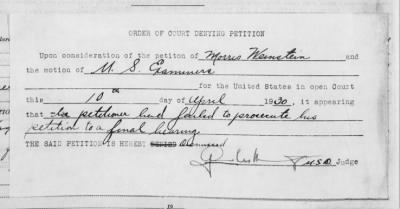 ORDER OF COURT DENYING PETITION
Upon consideration of the petiton of Morris Weinstein and
the motion of U. S. Examiners
for the United States in open Court
this 10th day of April 1930, it appearing
that the petitioner had failed to prosecute his
petition to a final hearing
THE SAID PETITION IS HEREBY DENIED Dismissed
USD Judge